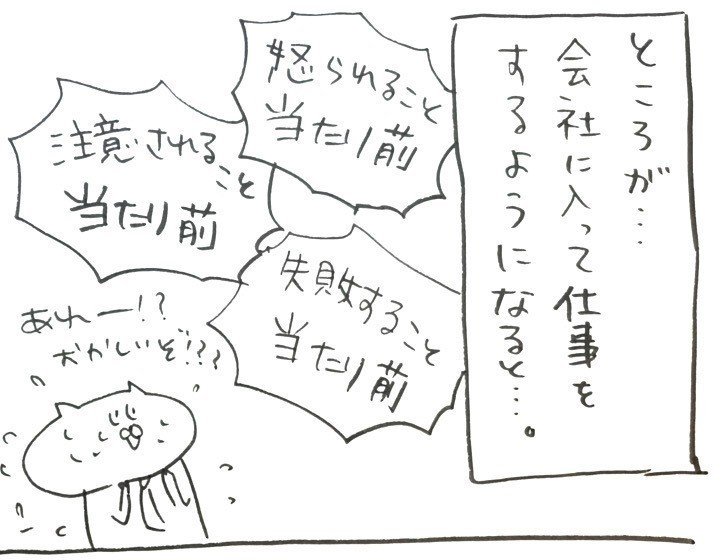 ところが…
会社に入って仕事を
するようになると…。
怒られること
当たり前
注意される
こと
当たり前
失敗すること
当たり前
あれー!?
おかしいぞ!??